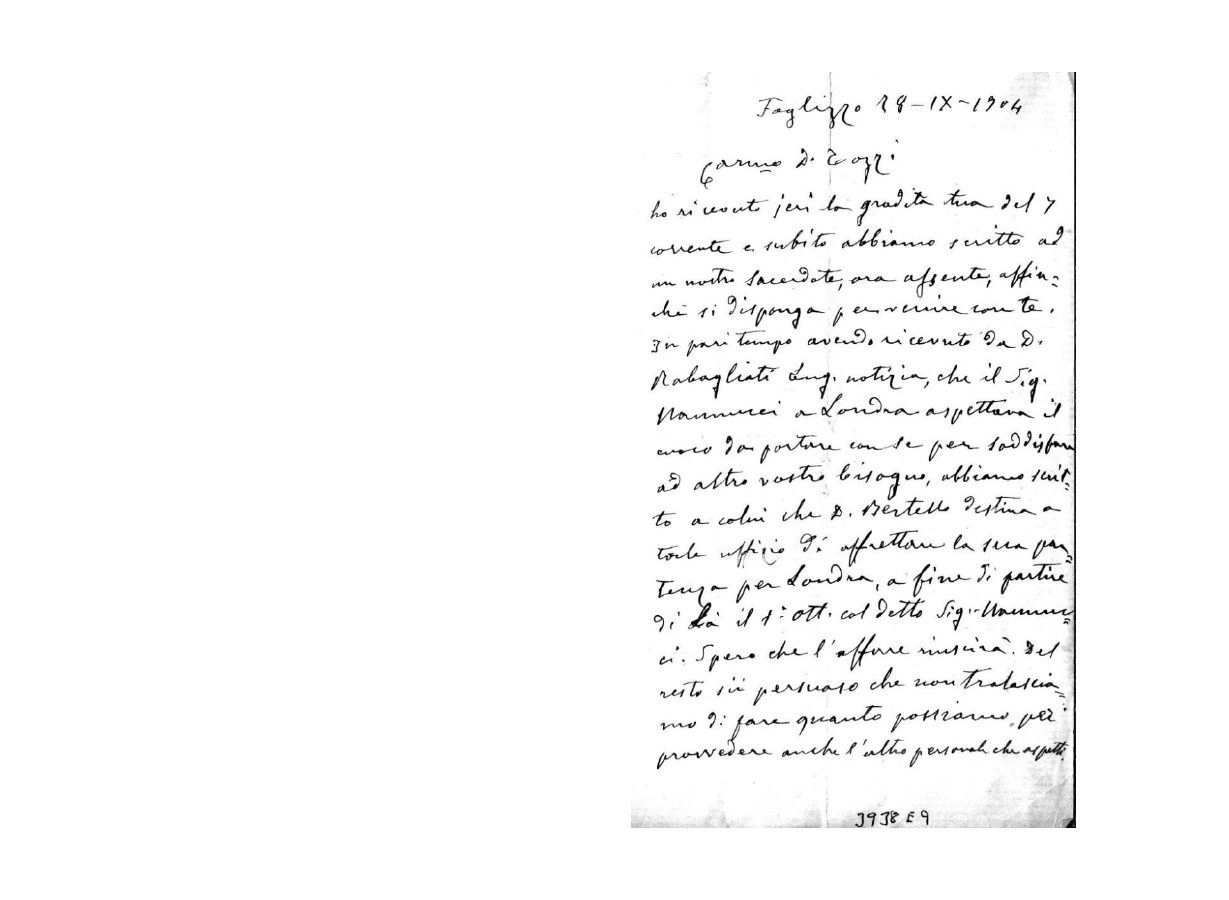 Foglizzo 18-IX-1904
Carmo D. Tozzi
ho ricevuto jeri la gradita tua del 7
corrente e subito abbiamo scritto ad
un nostro Sacerdote, ora assente, affin=
chè si disponga per venire con te.
In pari tempo avendo ricevuto da D.
Rabagliati Eug. notizia, che il Sig.
Nannucci a Londra aspettava il
cuoco da portare con se per soddisfare
ad altro vostro bisogno, abbiamo scrit=
to a colui che D. Bertello destina a
tale uffizio di affrettare la sua par=
tenza per Londra, a fine di partire
di Là il 1° Ott. col detto Sig. Nannuc=
ci. Spero che l'affare riuscirà. Del
resto sii persuaso che non tralascia=
mo di fare quanto possiamo per
provvedere anche l'altro personale che aspetti
3938 E 9